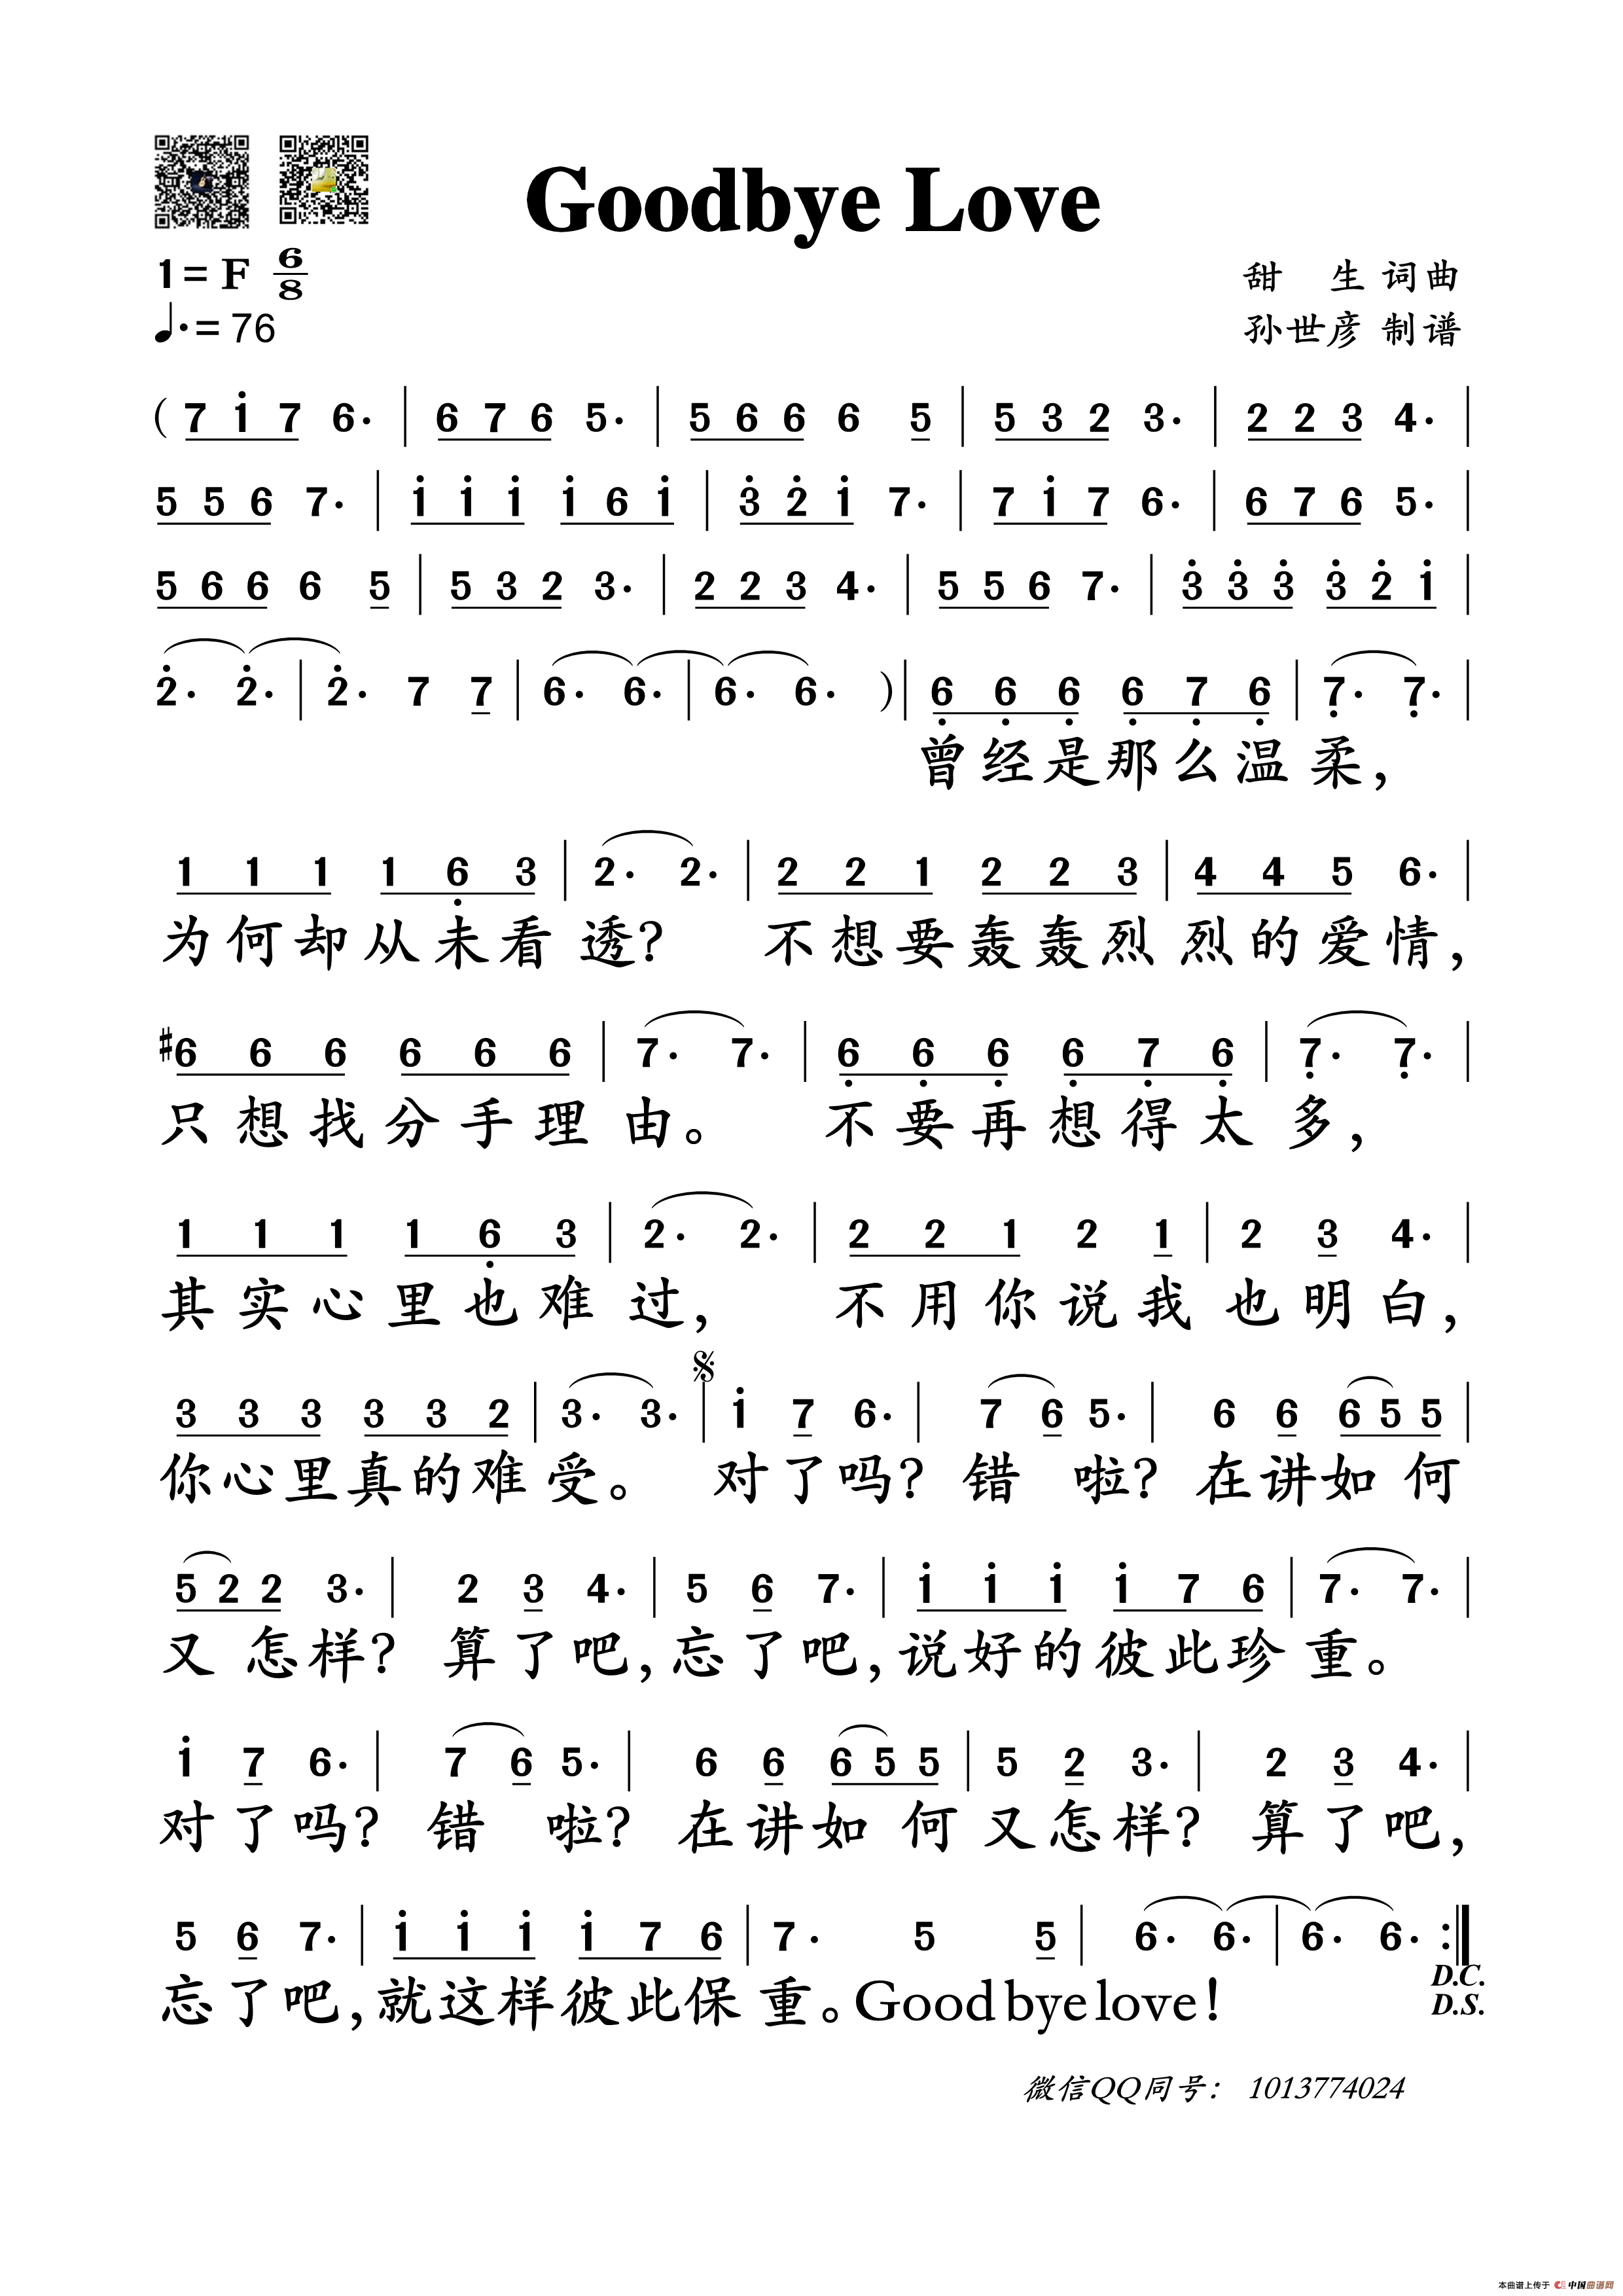 Goodbye Love
1= F 6/8
甜 生 词曲
♩.= 76
孙世彦 制谱
( 7 1̇ 7 6. | 6 7 6 5. | 5 6 6 6 5 | 5 3 2 3. | 2 2 3 4. |
5 5 6 7. | 1̇ 1̇ 1̇ 1̇ 6 1̇ | 3̇ 2̇ 1̇ 7. | 7 1̇ 7 6. | 6 7 6 5. |
5 6 6 6 5 | 5 3 2 3. | 2 2 3 4. | 5 5 6 7. | 3̇ 3̇ 3̇ 3̇ 2̇ 1̇ |
2̇. 2̇. | 2̇. 7 7 | 6. 6. | 6. 6. ) | 6̣ 6̣ 6̣ 6̣ 7̣ 6̣ | 7̣. 7̣. |
曾经是那么温柔，
1 1 1 1 6̣ 3 | 2. 2. | 2 2 1 2 2 3 | 4 4 5 6. |
为何却从未看透？ 不想要轰轰烈烈的爱情，
#6 6 6 6 6 6 | 7. 7. | 6̣ 6̣ 6̣ 6̣ 7̣ 6̣ | 7̣. 7̣. |
只想找分手理由。 不要再想得太多，
1 1 1 1 6̣ 3 | 2. 2. | 2 2 1 2 1 | 2 3 4. |
其实心里也难过， 不用你说我也明白，
3 3 3 3 3 2 | 3. 3. | 𝄋 1̇ 7 6. | 7 6 5. | 6 6 6 5 5 |
你心里真的难受。 对了吗？错 啦？在讲如何
5 2 2 3. | 2 3 4. | 5 6 7. | 1̇ 1̇ 1̇ 1̇ 7 6 | 7. 7. |
又 怎样？ 算了吧，忘了吧，说好的彼此珍重。
1̇ 7 6. | 7 6 5. | 6 6 6 5 5 | 5 2 3. | 2 3 4. |
对了吗？ 错 啦？ 在讲如何又怎样？ 算了吧，
5 6 7. | 1̇ 1̇ 1̇ 1̇ 7 6 | 7. 5 5 | 6. 6. | 6. 6. :‖
D.C.
D.S.
忘了吧，就这样彼此保重。Good bye love！
微信QQ同号： 1013774024
本曲谱上传于 中国曲谱网